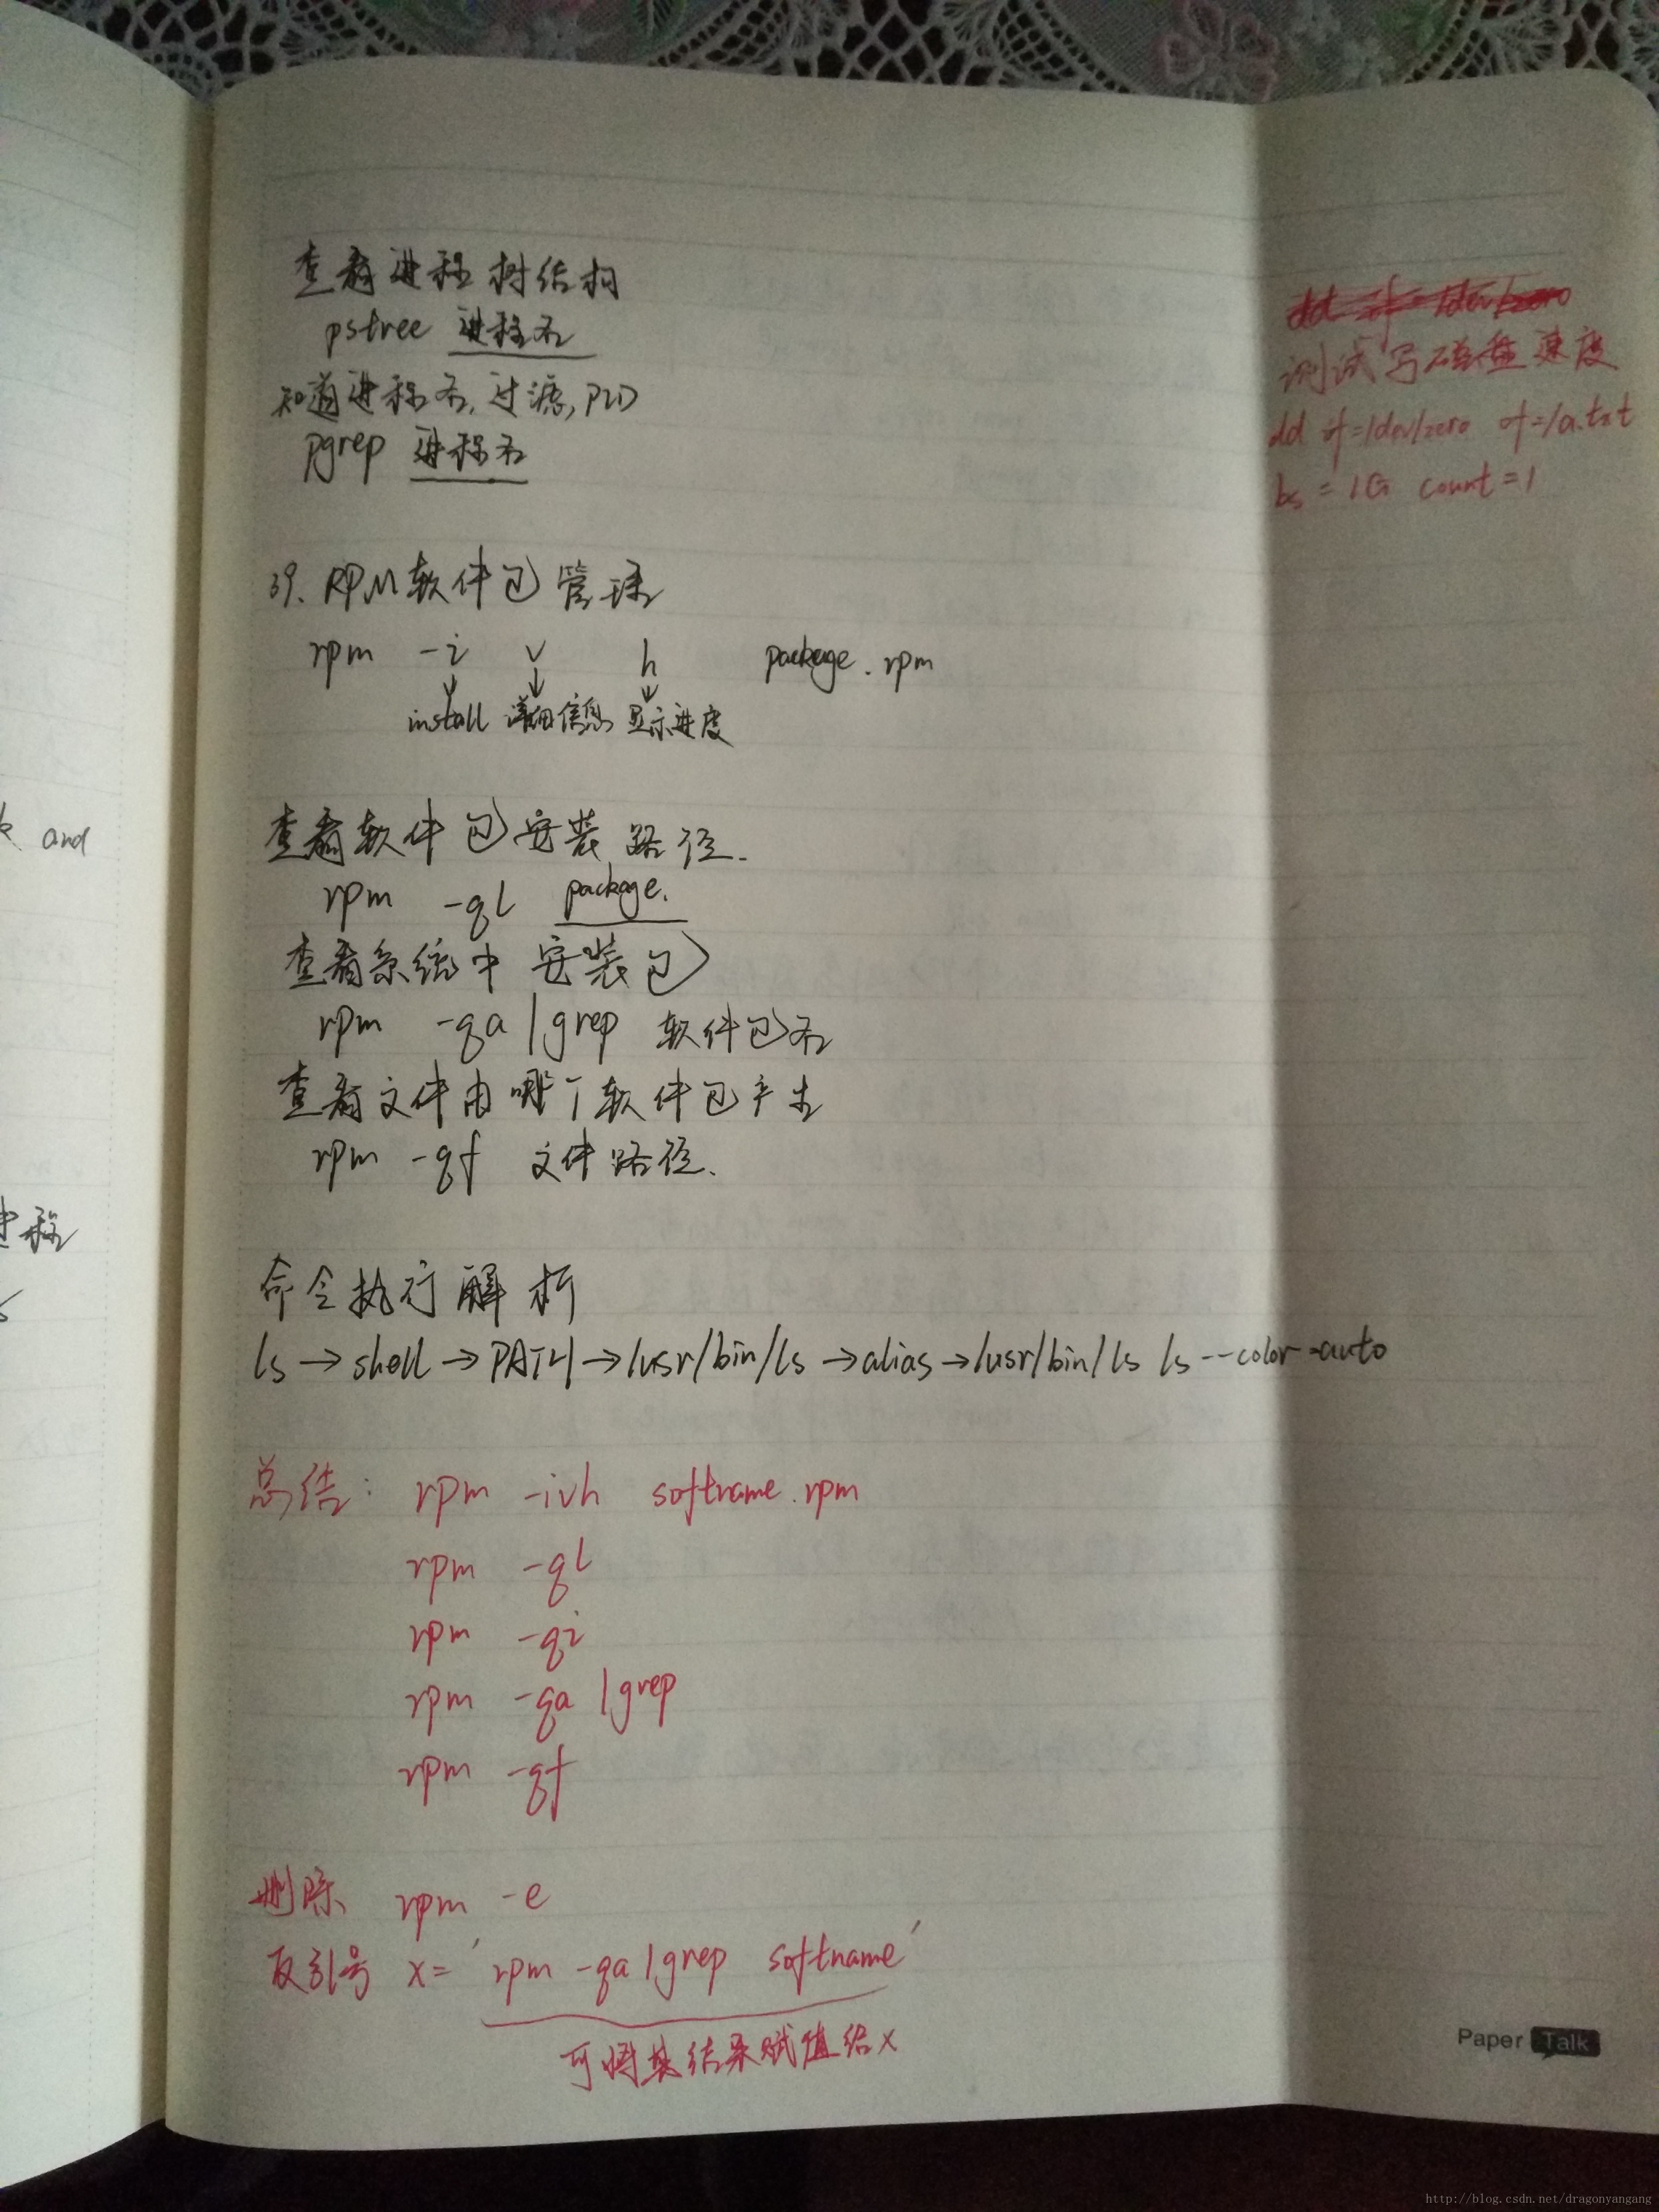 查看进程树结构
pstree 进程名
知道进程名,过滤,PID
pgrep 进程名
39. RPM软件包管理
rpm -i v h package.rpm
install 详细信息 显示进度
查看软件包安装路径.
rpm -ql package.
查看系统中安装包
rpm -qa |grep 软件包名
查看文件由哪个软件包产生
rpm -qf 文件路径.
命令执行解析
ls→shell→PATH→/usr/bin/ls→alias→/usr/bin/ls ls --color=auto
总结: rpm -ivh softname.rpm
rpm -ql
rpm -qi
rpm -qa |grep
rpm -qf
删除 rpm -e
反引号 x= 'rpm -qa |grep softname'
可将其结果赋值给x
测试写磁盘速度
dd if=/dev/zero of=/a.txt
bs=1G count=1
and
进程
Paper Talk
http://blog.csdn.net/dragonyangang